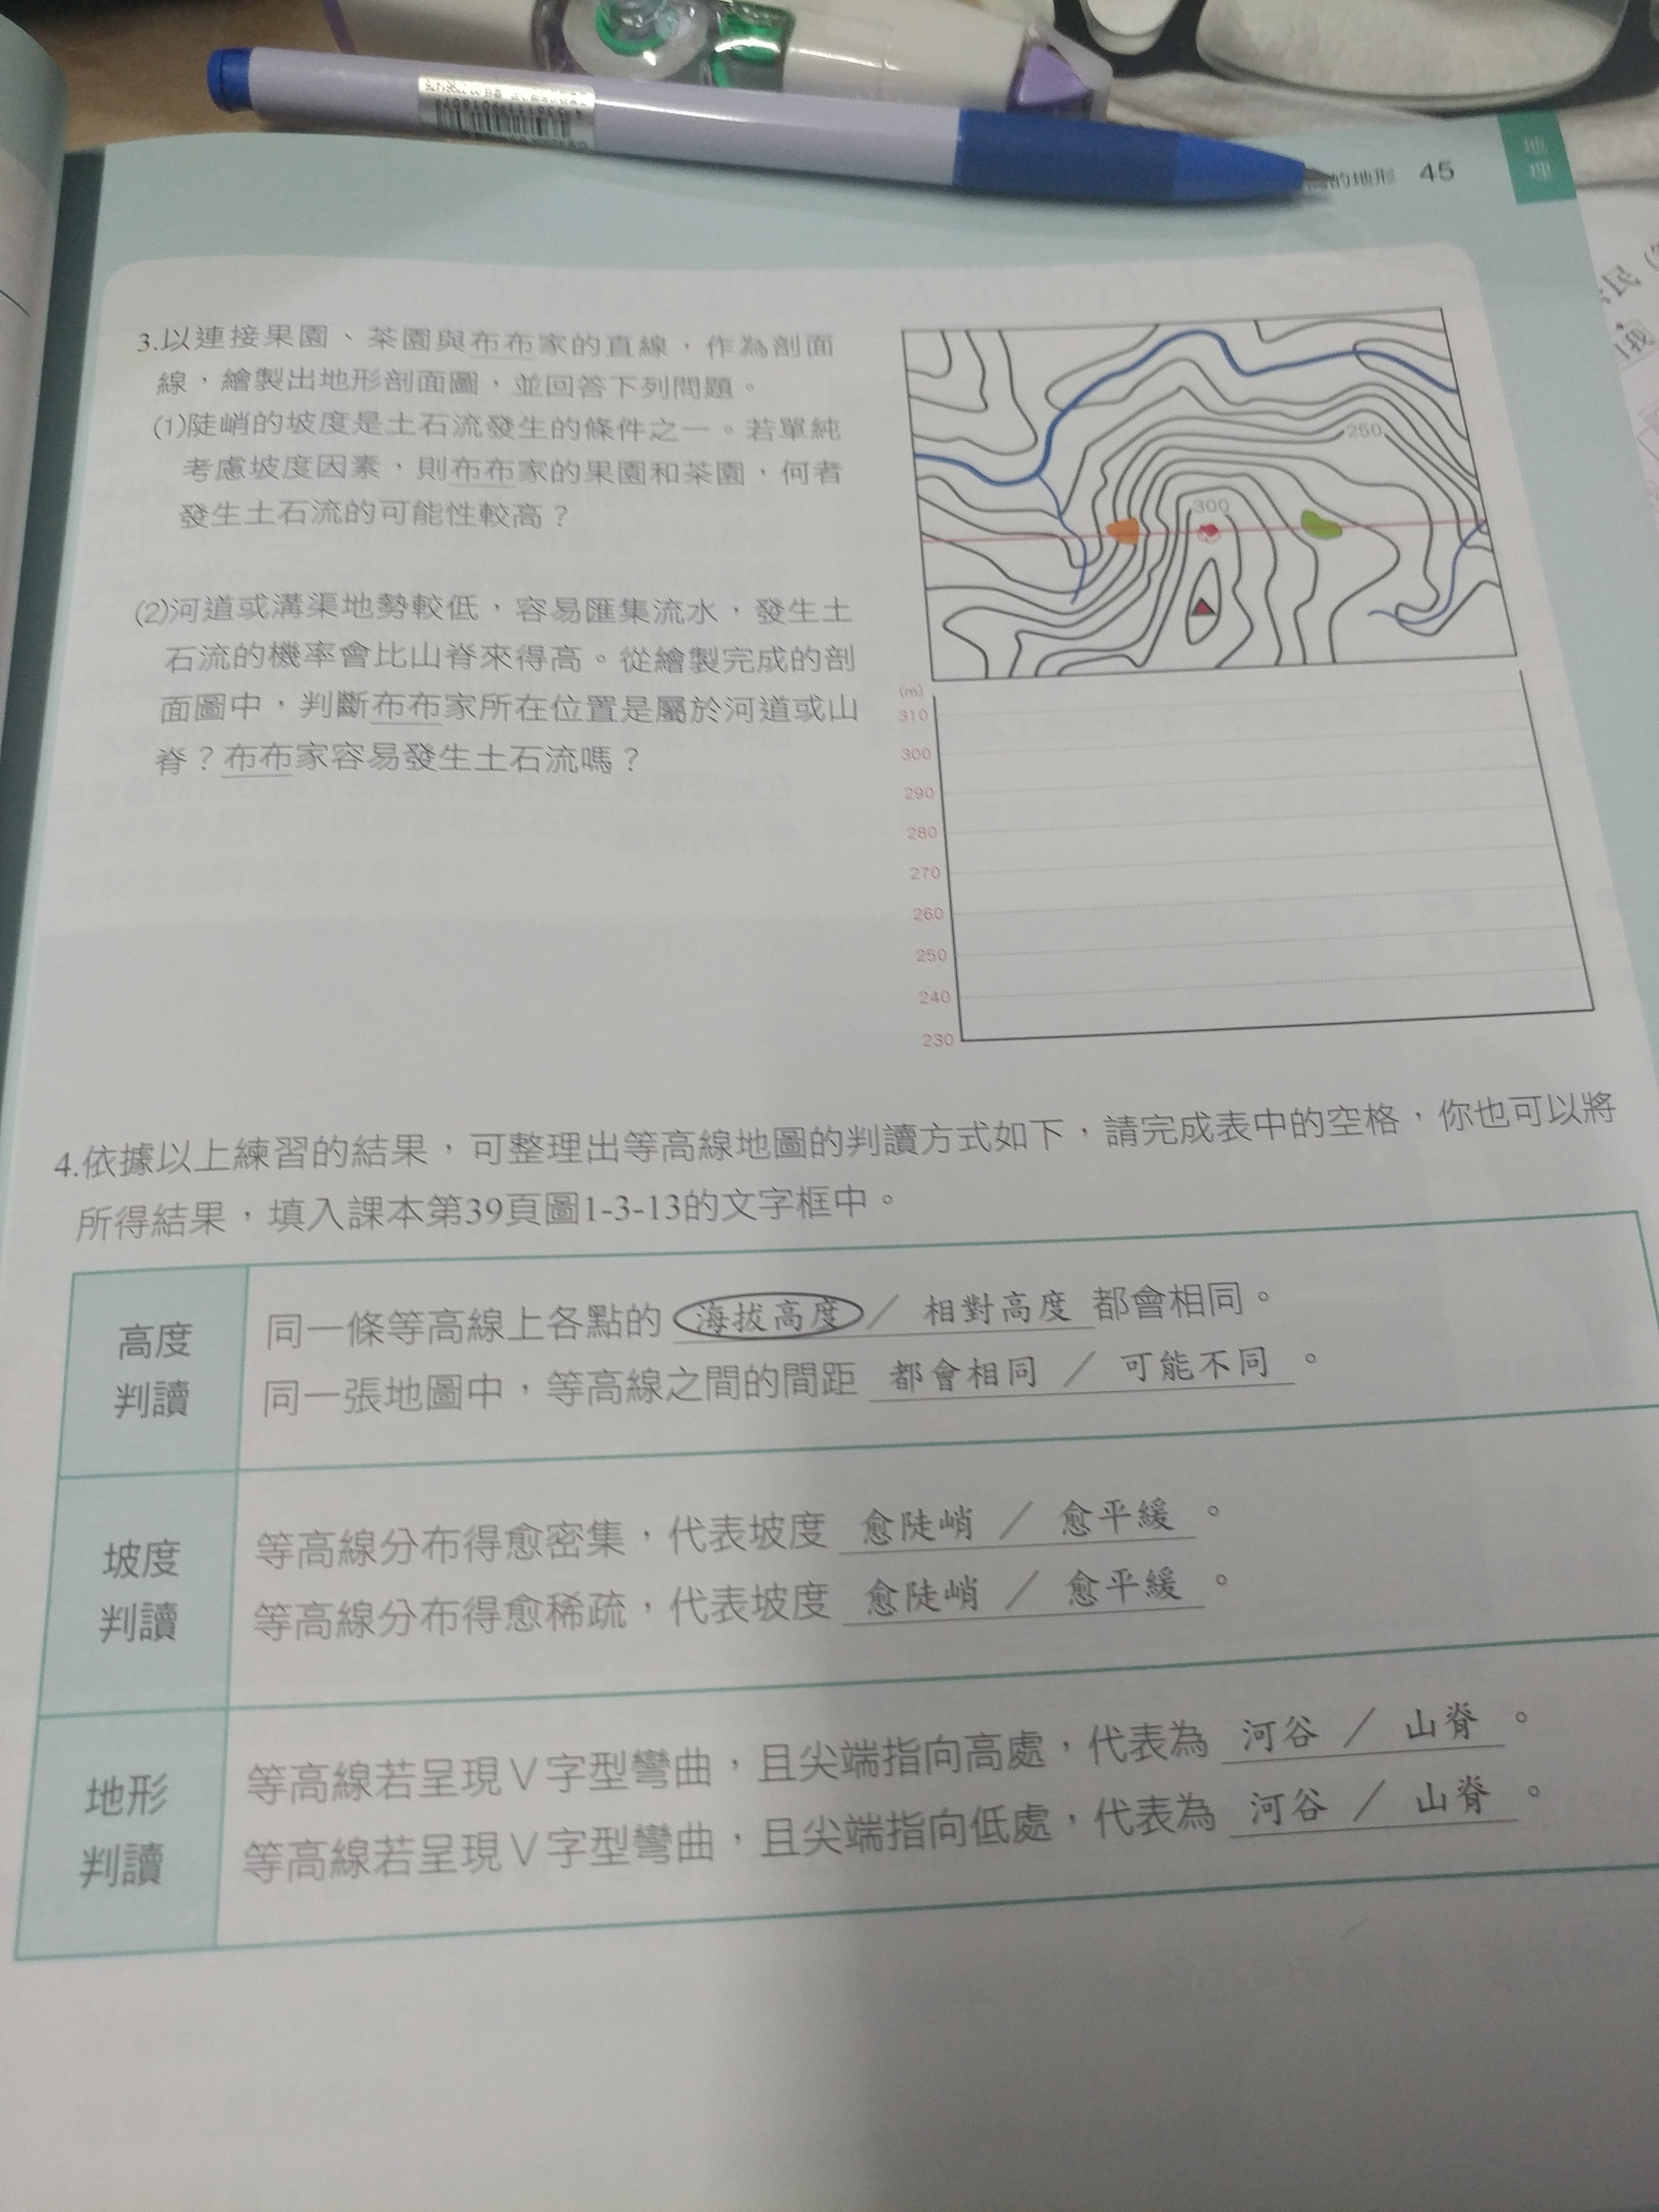 的地形 45
地理
3.以連接果園、茶園與布布家的直線，作為剖面
線，繪製出地形剖面圖，並回答下列問題。
(1)陡峭的坡度是土石流發生的條件之一。若單純
考慮坡度因素，則布布家的果園和茶園，何者
發生土石流的可能性較高？
(2)河道或溝渠地勢較低，容易匯集流水，發生土
石流的機率會比山脊來得高。從繪製完成的剖
面圖中，判斷布布家所在位置是屬於河道或山
脊？布布家容易發生土石流嗎？
250
300
(m)
310
300
290
280
270
260
250
240
230
4.依據以上練習的結果，可整理出等高線地圖的判讀方式如下，請完成表中的空格，你也可以將
所得結果，填入課本第39頁圖1-3-13的文字框中。
高度
判讀
同一條等高線上各點的 海拔高度 ／ 相對高度 都會相同。
同一張地圖中，等高線之間的間距 都會相同 ／ 可能不同 。
坡度
判讀
等高線分布得愈密集，代表坡度 愈陡峭 ／ 愈平緩 。
等高線分布得愈稀疏，代表坡度 愈陡峭 ／ 愈平緩 。
地形
判讀
等高線若呈現Ｖ字型彎曲，且尖端指向高處，代表為 河谷 ／ 山脊 。
等高線若呈現Ｖ字型彎曲，且尖端指向低處，代表為 河谷 ／ 山脊 。